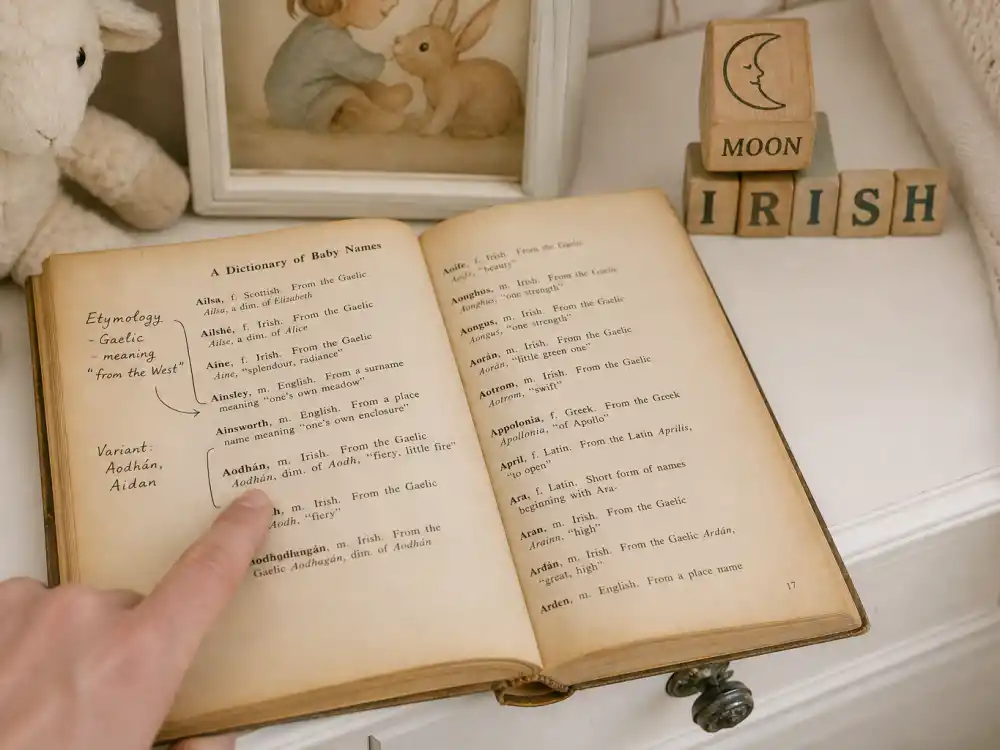 A Dictionary of Baby Names
Ailsa, f. Scottish. From the Gaelic
Ailsa, a dim. of Elizabeth
Ailshé, f. Irish. From the Gaelic
Ailse, a dim. of Alice
Aine, f. Irish. From the Gaelic
Aine, "splendour, radiance"
Ainsley, m. English. From a surname
meaning "one's own meadow"
Ainsworth, m. English. From a place
name meaning "one's own enclosure"
Aodhán, m. Irish. From the Gaelic
Aodhán, dim. of Aodh, "fiery, little fire"
h, m. Irish. From the Gaelic
Aodh. "fiery"
m. Irish. From the
Gaelic Aodhagán, dim. of Aodhán
Etymology
- Gaelic
- meaning
"from the West"
Variant:
Aodhán,
Aidan
Aoife, f. Irish. From the Gaelic
Aoife, "beauty"
Aonghus, m. Irish. From the Gaelic
Aonghus, "one strength"
Aongus, m. Irish. From the Gaelic
Aongus, "one strength"
Aorán, m. Irish. From the Gaelic
Aorán, "little green one"
Aotrom, m. Irish. From the Gaelic
Aotrom, "swift"
Appolonia, f. Greek. From the Greek
Apollonia, "of Apollo"
April, f. Latin. From the Latin Aprilis,
"to open"
Ara, f. Latin. Short form of names
beginning with Ara-
Aran, m. Irish. From the Gaelic
Arainn, "high"
Ardán, m. Irish. From the Gaelic Ardán,
"great, high"
Arden, m. English. From a place name
17
MOON
IRISH